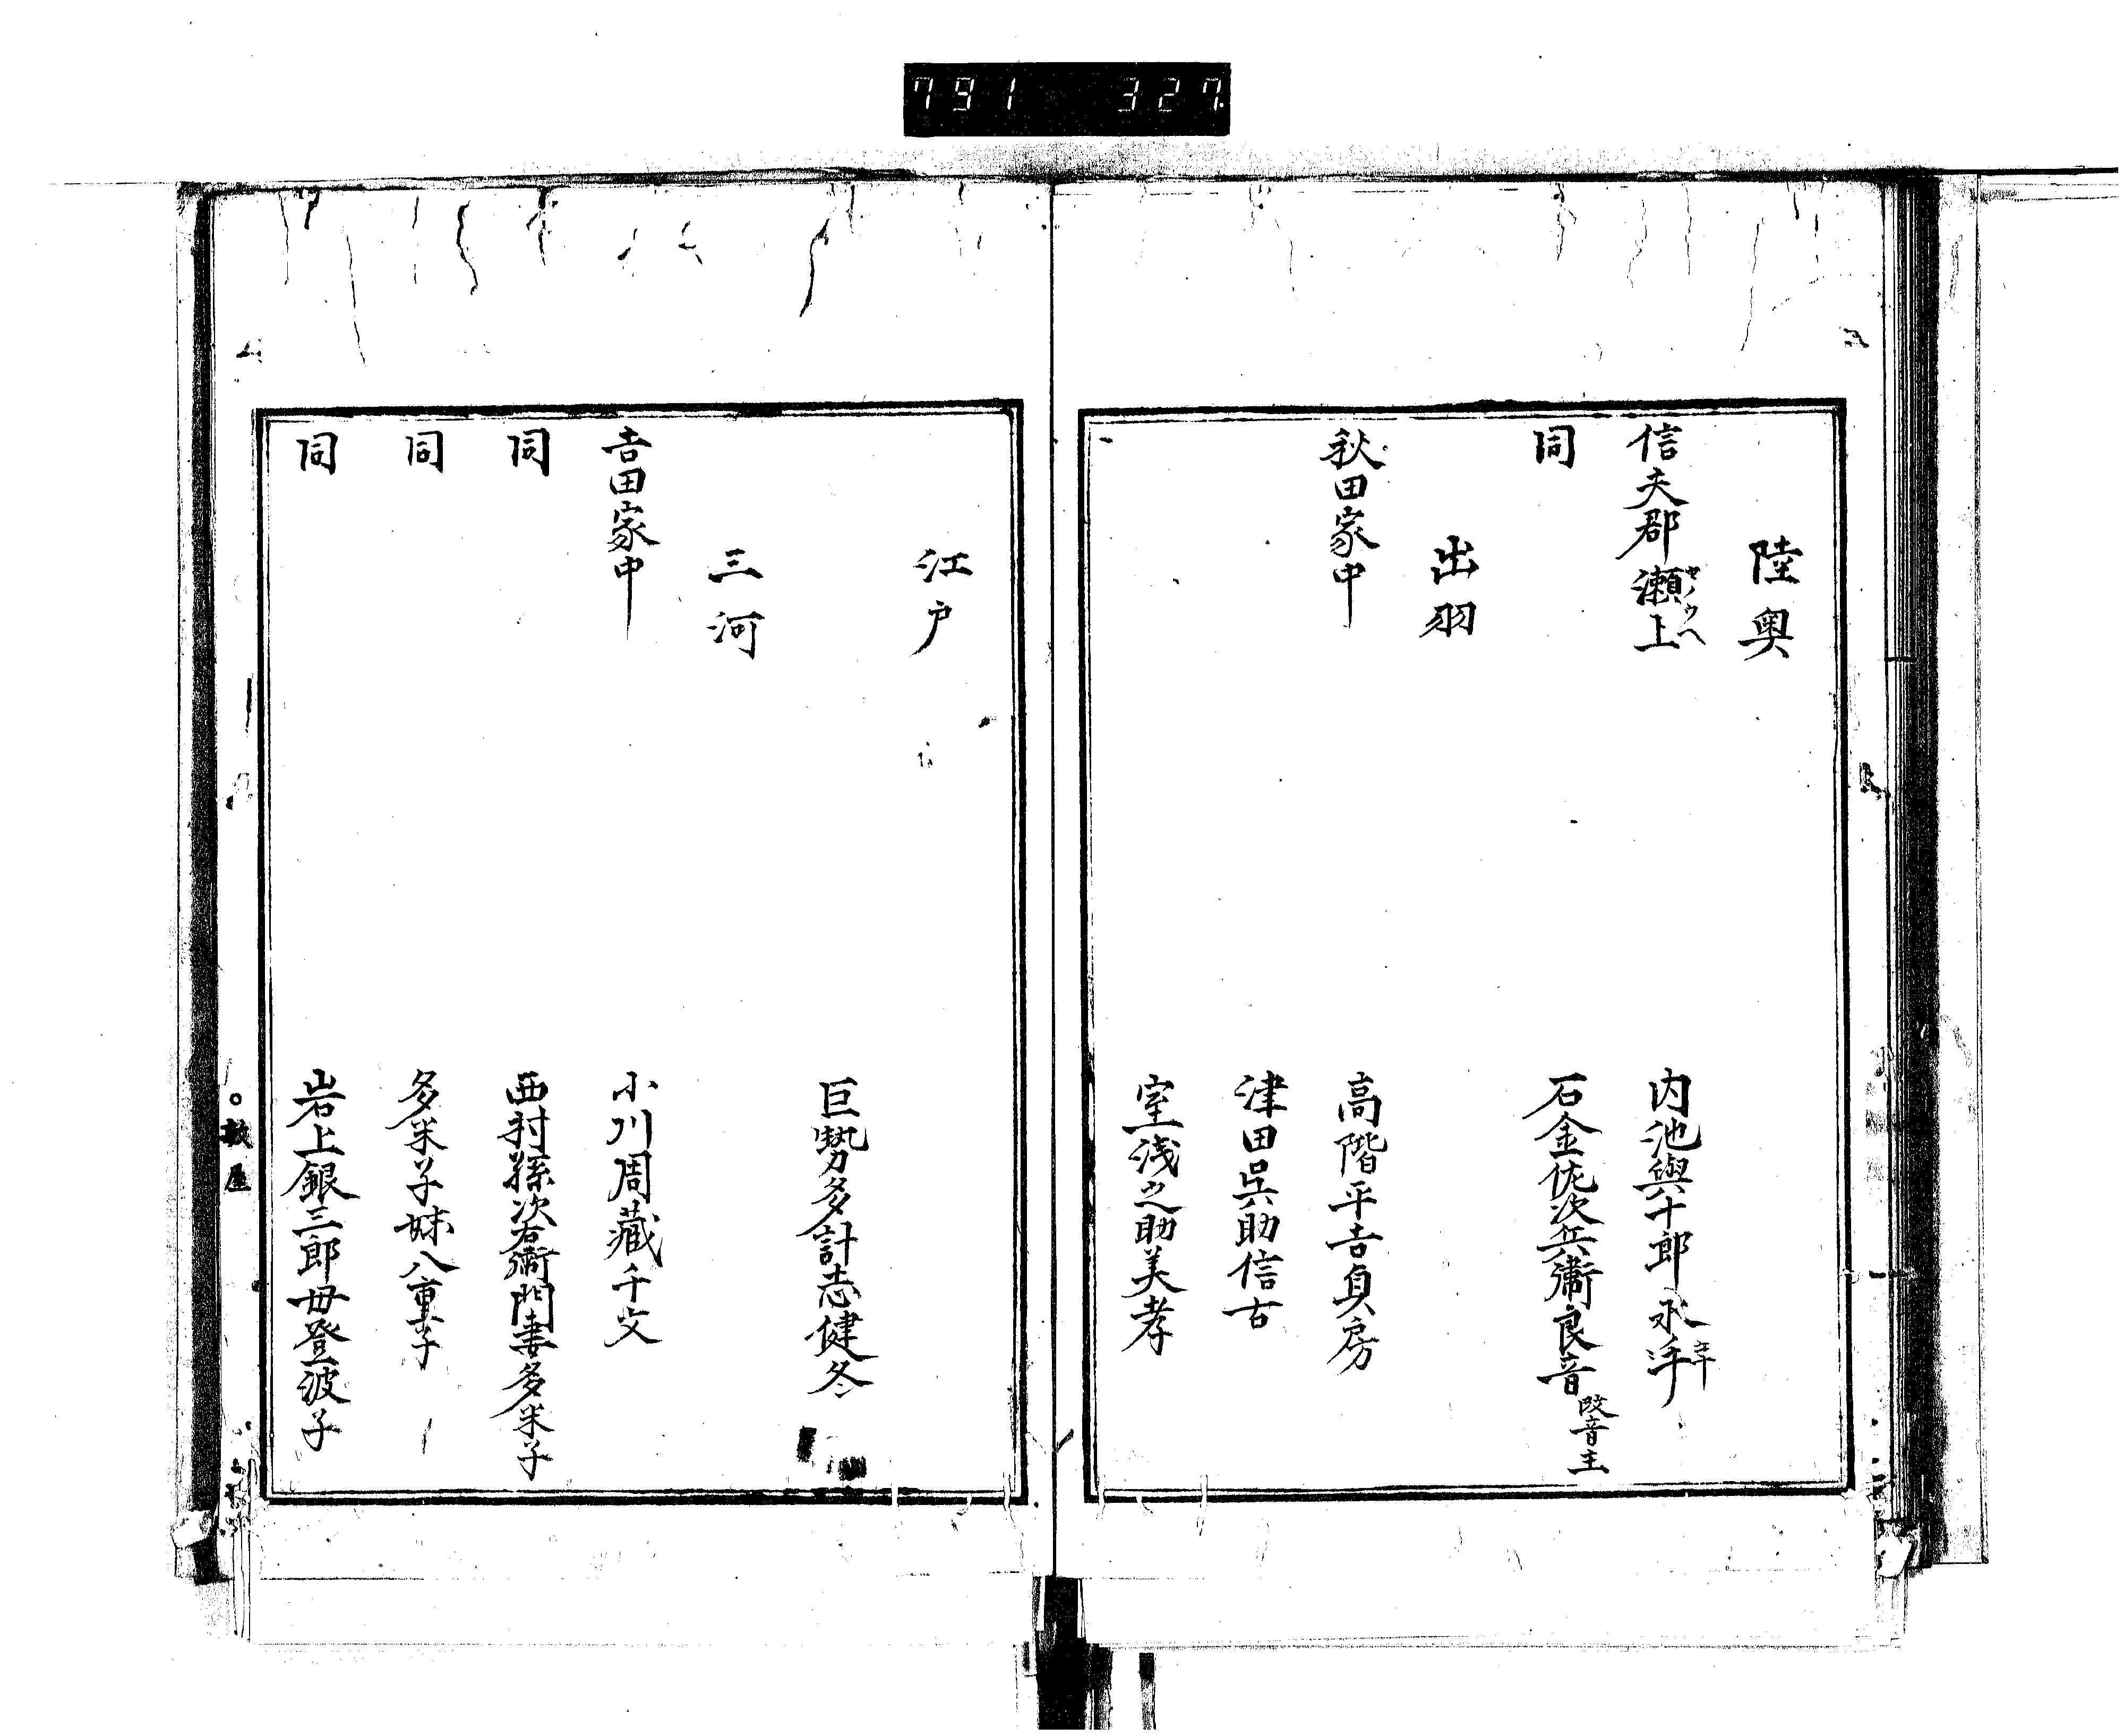 791 327
陸奥
信夫郡瀬上 内池與十郎永年
セノウヘ
同 石金佐次兵衛良音 改音主
出羽
秋田家中 高階平吉貞房
津田呉助信古
室浅之助美孝
江戸
巨勢多計志健冬
三河
吉田家中 小川周蔵千文
同 西村孫次右衛門妻多米子
同 多米子妹八重子
同 岩上銀三郎毋登波子